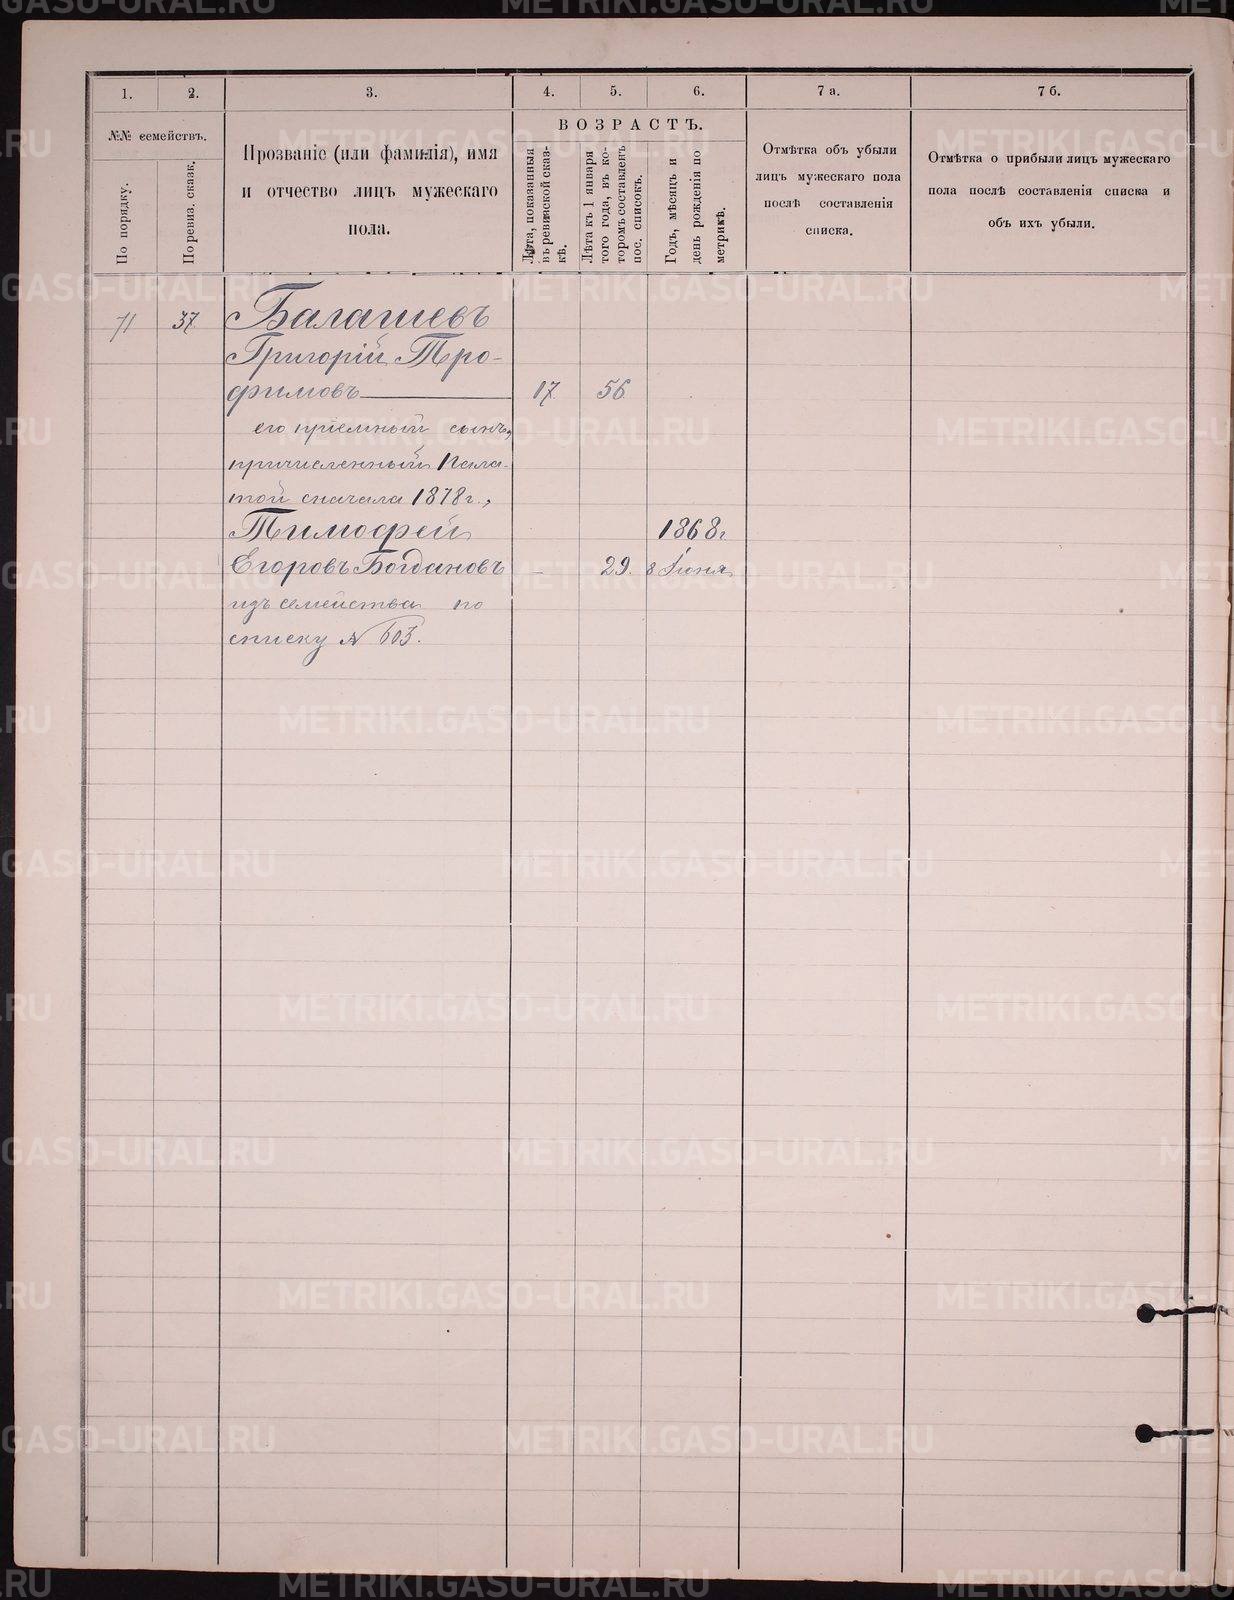 1. 2. 3. 4. 5. 6. 7 а. 7 б.
№№ семействъ.
По порядку.
По ревиз. сказк.
Прозваніе (или фамилія), имя
и отчество лицъ мужескаго
пола.
ВОЗРАСТЪ.
Лѣта, показанныя
въ ревизской сказ-
кѣ.
Лѣта къ 1 января
того года, въ ко-
торомъ составленъ
пос. списокъ.
Годъ, мѣсяцъ и
день рожденія по
метрикѣ.
Отмѣтка объ убыли
лицъ мужескаго пола
послѣ составленія
списка.
Отмѣтка о прибыли лицъ мужескаго
пола послѣ составленія списка и
объ ихъ убыли.
71 37 Балашевъ
Григорій Тро-
фимовъ 17 56
его пріемный сынъ,
причисленный Пала-
той сначала 1878 г.,
Тимофей 1868 г
Егоровъ Богдановъ — 29. 8 Іюня
изъ семейства по
списку № 603.
METRIKI.GASO-URAL.RU